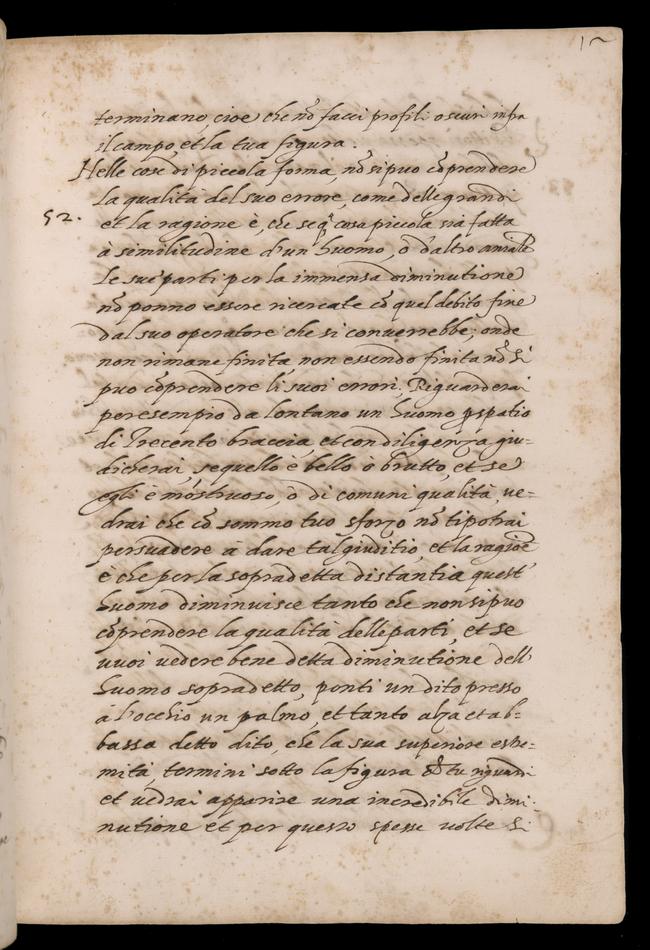 terminano, cioe che nõ facci profili oscuri infra
il campo, et la tua figura.
Nelle cose di piccola forma, nõ si puo cõprendere
la qualità del suo errore, come delle grandi
52. et la ragione è, che se q̃sta cosa piccola sia fatta
à similitudine d'un huomo, ò d'altro animale
le sue parti per la immensa diminutione
nõ ponno essere ricercate cõ quel debito fine
dal suo operatore che si conuerrebbe; onde
non rimane finita, non essendo finita nõ si
puo cõprendere li suoi errori, Riguarderai
per esempio da lontano un huomo ꝑ spatio
di Trecento braccia, et con diligenza giu=
dicherai, se quello è bello ò brutto, et se
egli è mostruoso, ò di comuni qualità, ue=
drai che cõ sommo tuo sforzo nõ ti potrai
persuadere à dare tal giuditio, et la ragioẽ
è che per la sopradetta distantia quest'
huomo diminuisce tanto che non si puo
cõprendere la qualità delle parti, et se
uuoi uedere bene detta diminutione dell'
huomo sopradetto, ponti un dito presso
à l'occhio un palmo, et tanto alza et ab=
bassa detto dito, che la sua superiore estre=
mità, termini sotto la figura che tu riguardi
et uedrai apparire una incredibile dimi=
nutione et per questo spesse uolte si